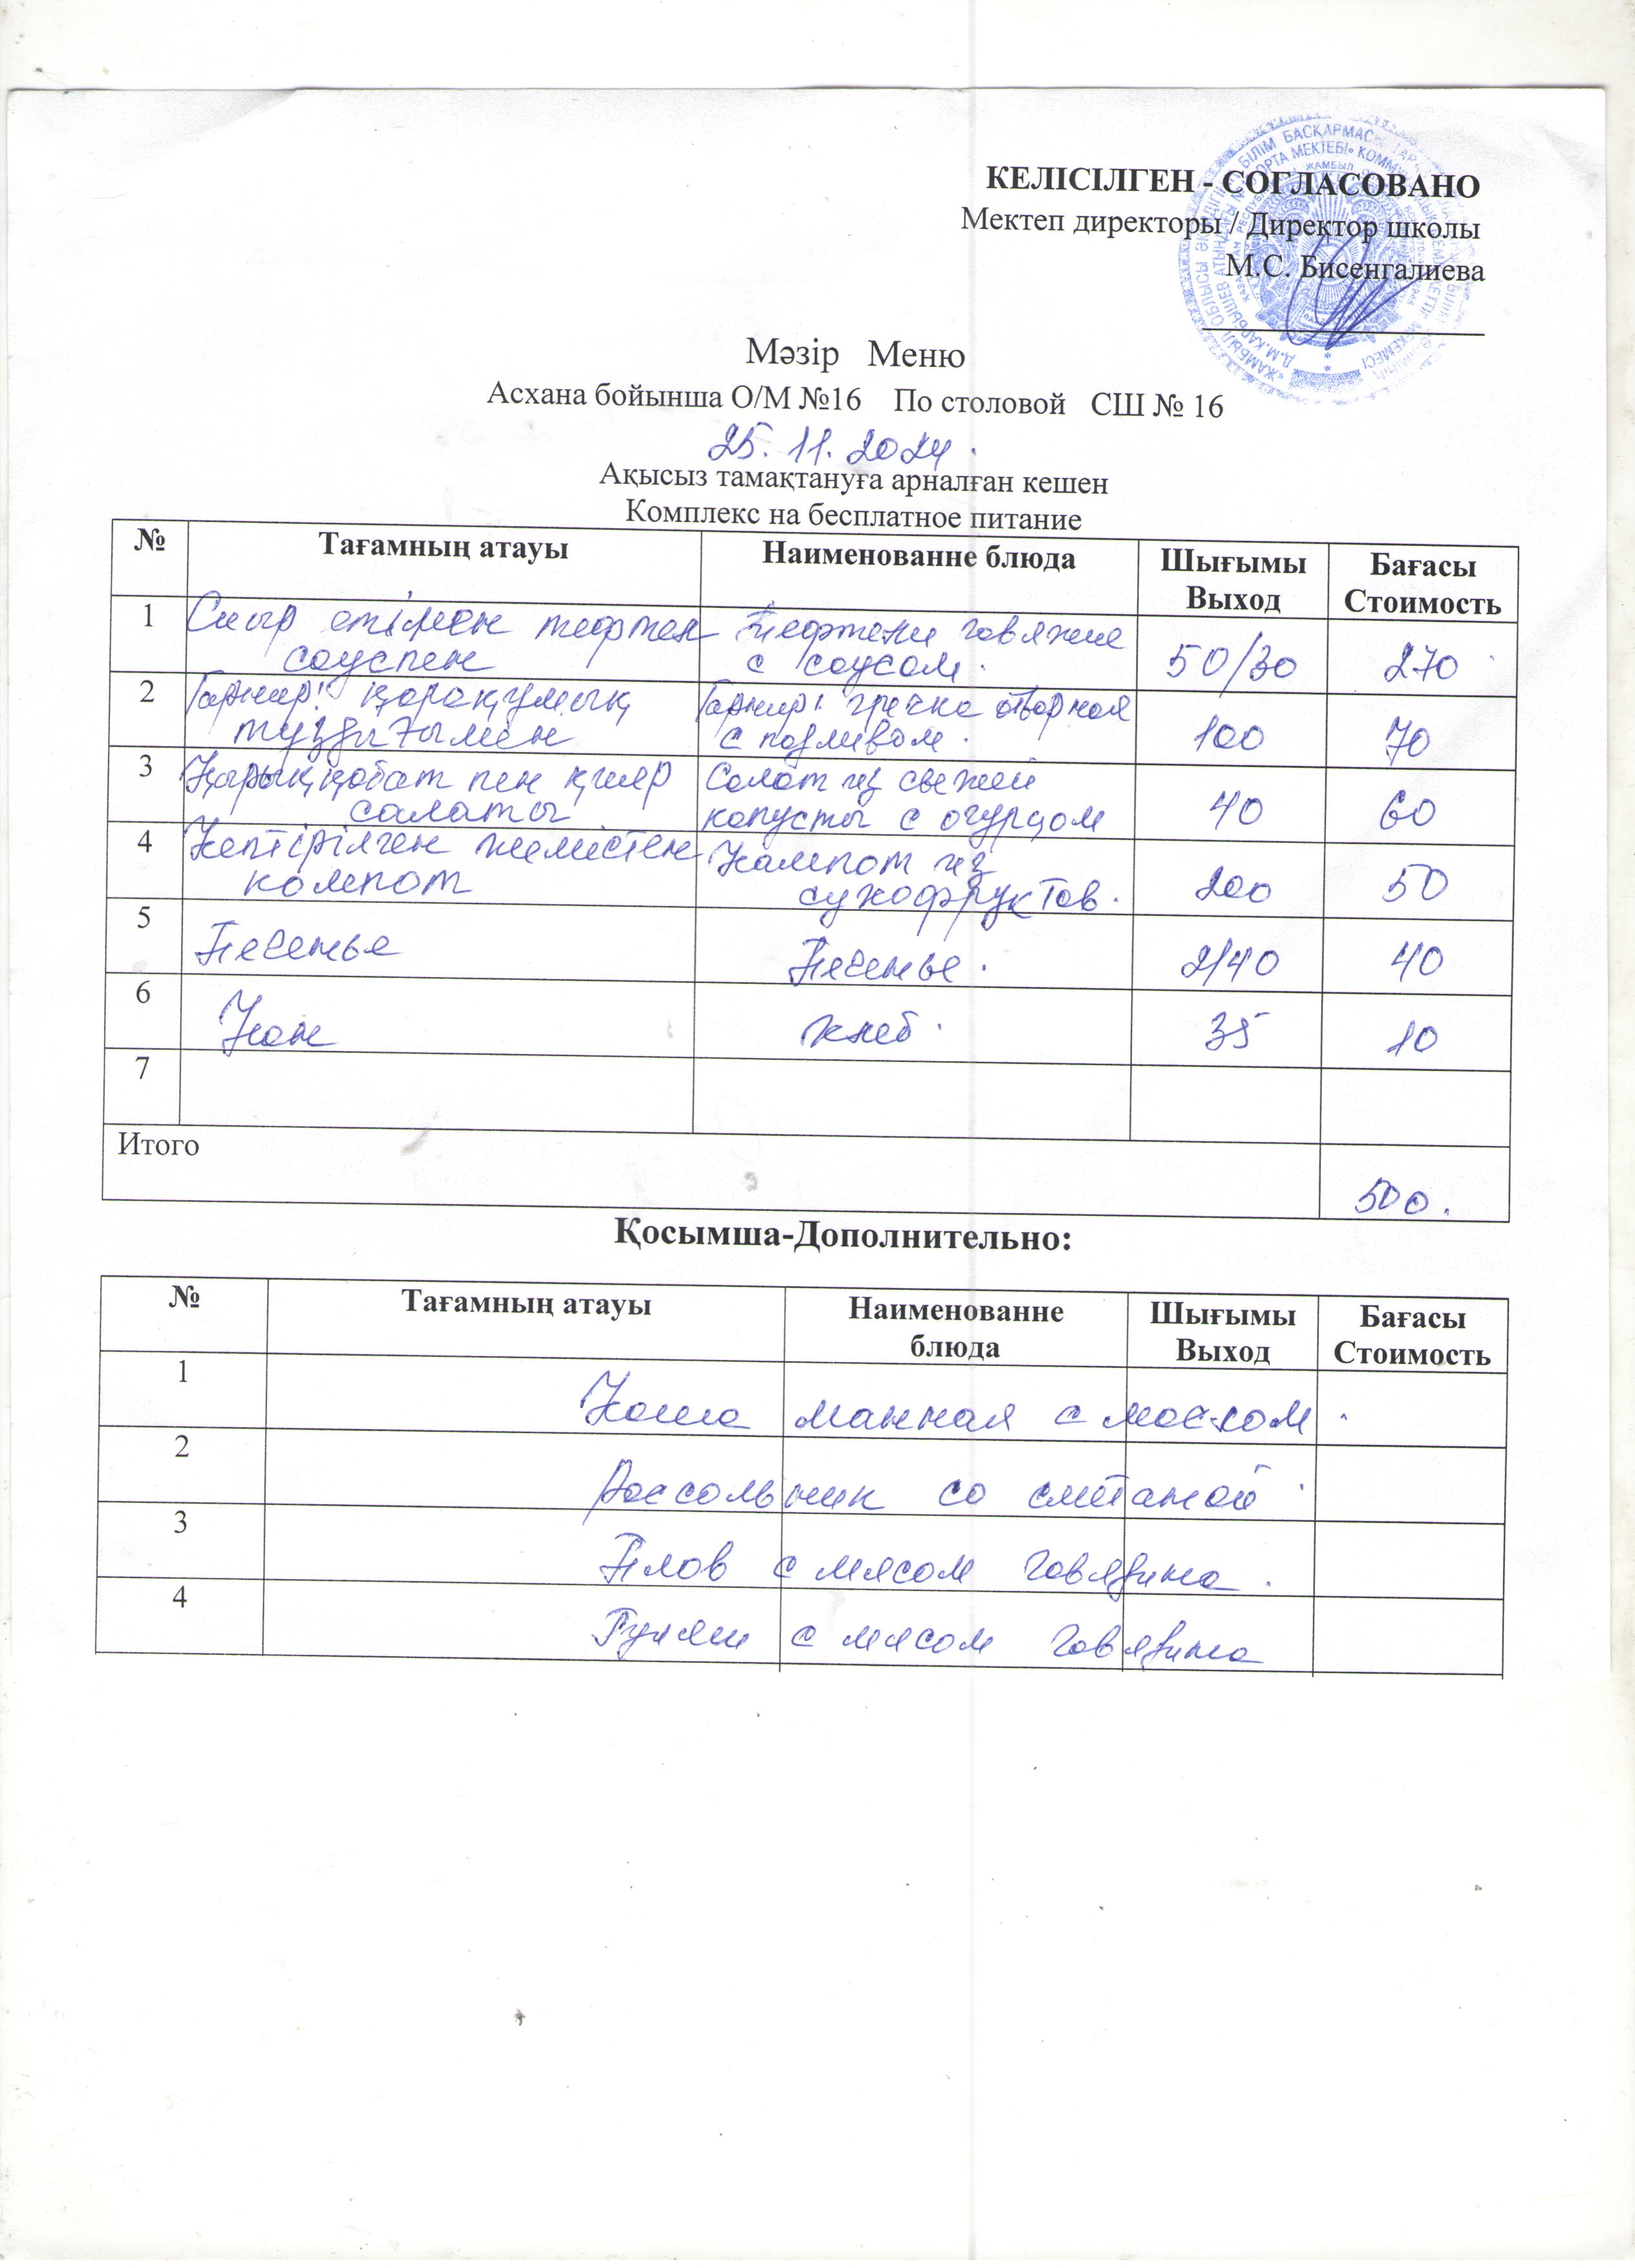 КЕЛІСІЛГЕН - СОГЛАСОВАНО
Мектеп директоры / Директор школы
М.С. Бисенгалиева
Мәзір Меню
Асхана бойынша О/М №16 По столовой СШ № 16
25. 11. 2024.
Ақысыз тамақтануға арналған кешен
Комплекс на бесплатное питание
№ Тағамның атауы Наименованне блюда Шығымы Выход Бағасы Стоимость
1 Сиыр етімен тефтел соуспен Тефтели говяжие с соусом. 50/30 270
2 Гарнир: қарақұмық тұздығымен Гарнир: гречка отворная с подливом. 100 70
3 қырыққабат пен қияр салаты Салат из свежей капусты с огурцом 40 60
4 Кептірілген жемістен компот Компот из сухофруктов. 200 50
5 Печенье Печенье. 2/40 40
6 Нан хлеб. 35 10
7
Итого 500.
Қосымша-Дополнительно:
№ Тағамның атауы Наименованне блюда Шығымы Выход Бағасы Стоимость
1 Каша манная с маслом.
2 Рассольник со сметаной.
3 Плов с мясом говядина.
4 Гуляш с мясом говядина